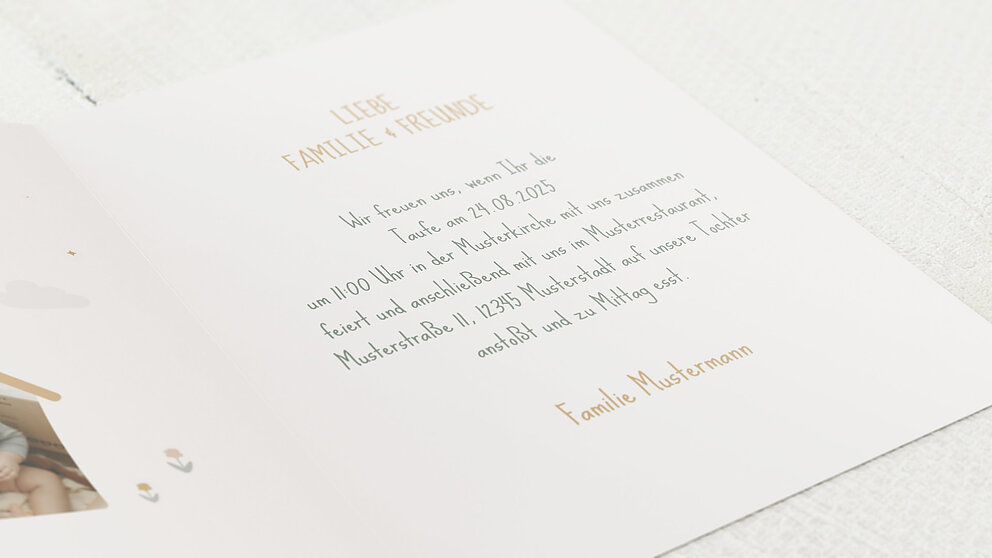 LIEBE
FAMILIE & FREUNDE
Wir freuen uns, wenn Ihr die
Taufe am 24.08.2025
um 11:00 Uhr in der Musterkirche mit uns zusammen
feiert und anschließend mit uns im Musterrestaurant,
Musterstraße 11, 12345 Musterstadt auf unsere Tochter
anstoßt und zu Mittag esst.
Familie Mustermann